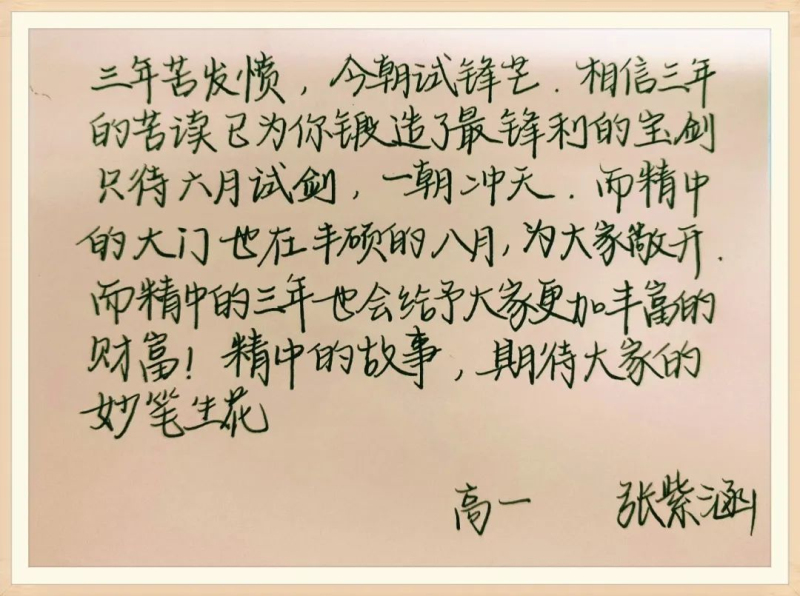 三年苦发愤，今朝试锋芒．相信三年
的苦读已为你锻造了最锋利的宝剑
只待六月试剑，一朝冲天．而精中
的大门也在丰硕的八月，为大家敞开．
而精中的三年也会给予大家更加丰富的
财富！精中的故事，期待大家的
妙笔生花
高一 张紫涵